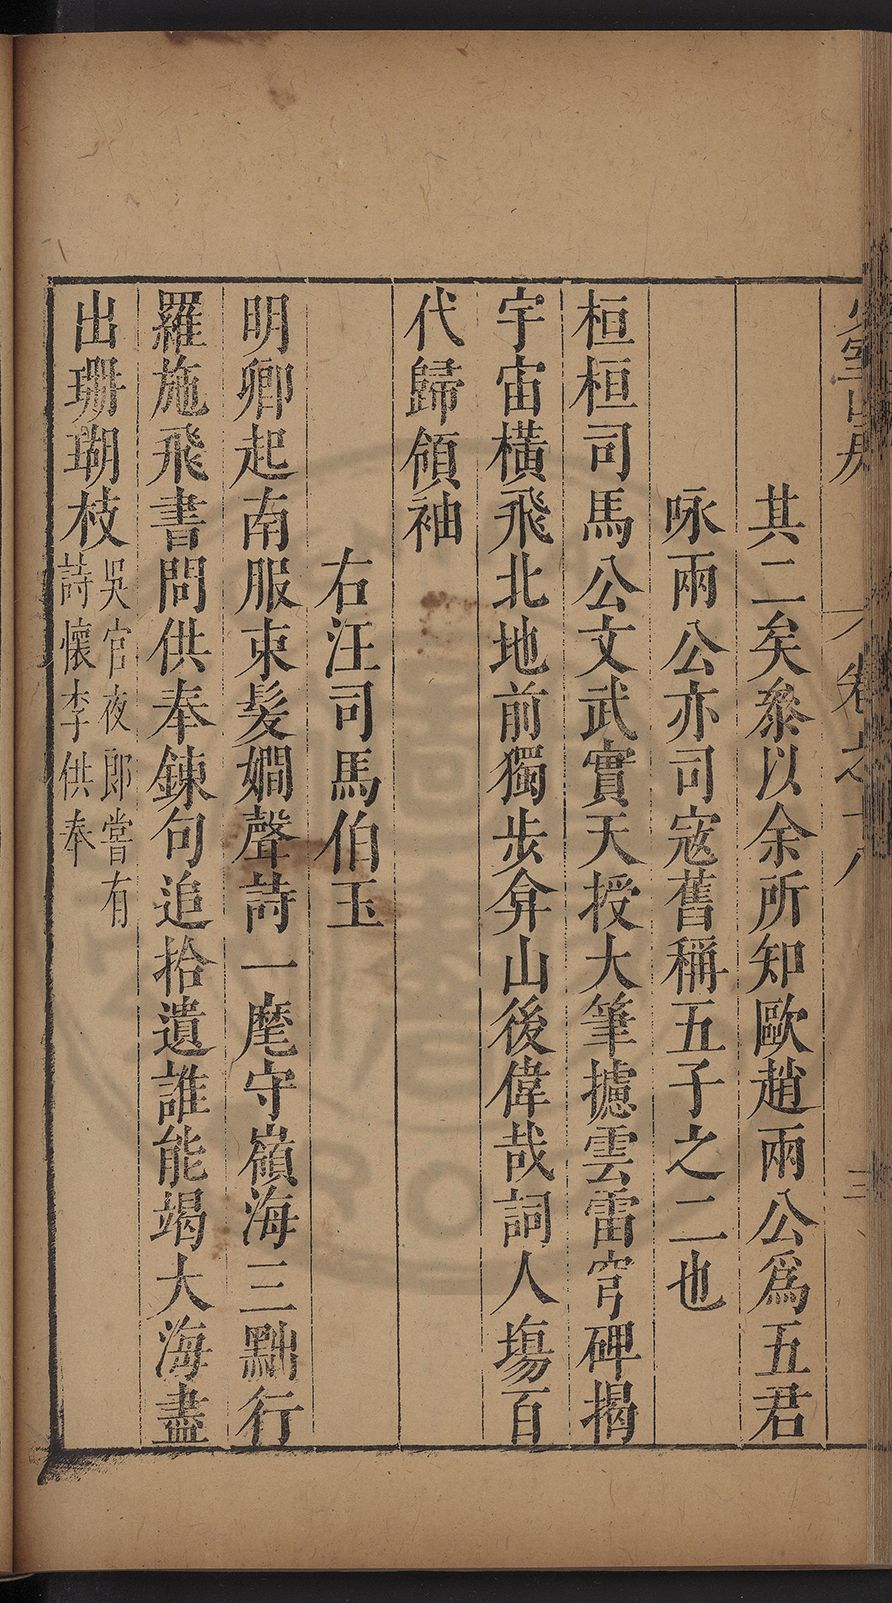 少室山房 卷之十八 三
其二矣叅以余所知歐趙兩公爲五君
咏兩公亦司寇舊稱五子之二也
桓桓司馬公文武實天授大筆攄雲雷穹碑揭
宇宙橫飛北地前獨步弇山後偉哉詞人塲百
代歸領袖
右汪司馬伯玉
明卿起南服束髮嫺聲詩一麾守嶺海三黜行
羅施飛書問供奉鍊句追拾遺誰能竭大海盡
出珊瑚枝吳官夜郎嘗有
詩懷李供奉